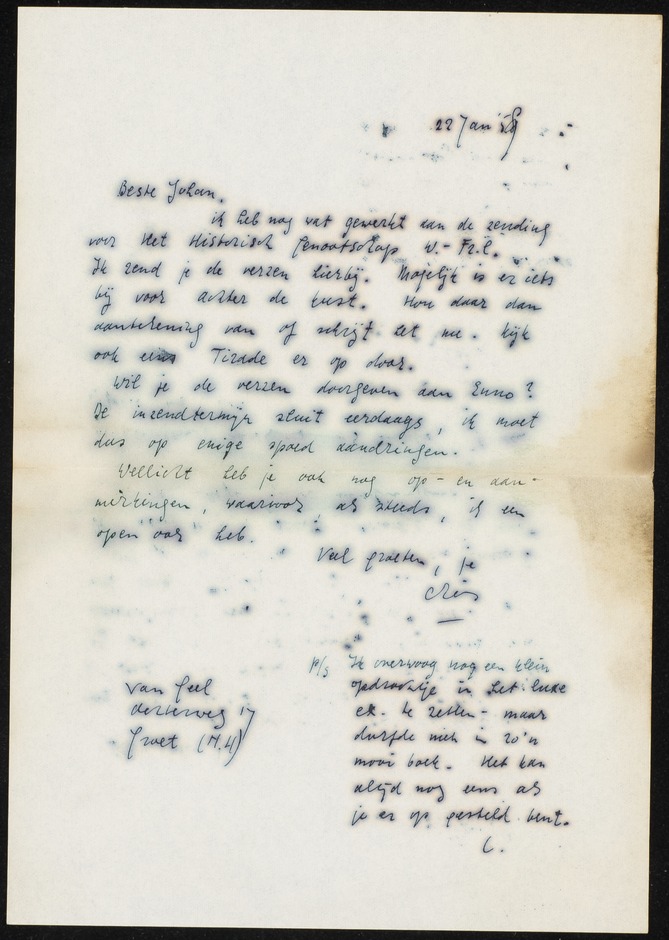 22 Jan '58
Beste Johan,
ik heb nog wat gewerkt aan de zending
voor Het Historisch Genootschap W.-Frl.
Ik zend je de verzen hierbij. Mogelijk is er iets
bij voor achter de kust. Hou daar dan
aantekening van of schrijf het me. Kijk
ook eens Tirade er op door.
Wil je de verzen doorgeven aan Enno?
De inzendtermijn sluit eerdaags, ik moet
dus op enige spoed aandringen.
Wellicht heb je ook nog op- en aan-
merkingen, waarvoor, als steeds, ik een
open oor heb.
Veel groeten, je
Chris
P/s Ik overwoog nog een klein
opdrachtje in het luxe
ex. te zetten - maar
durfde niet in zo'n
mooi boek. Het kan
altijd nog eens als
je er op gesteld bent.
C.
van Geel
17
Groet (N.H)